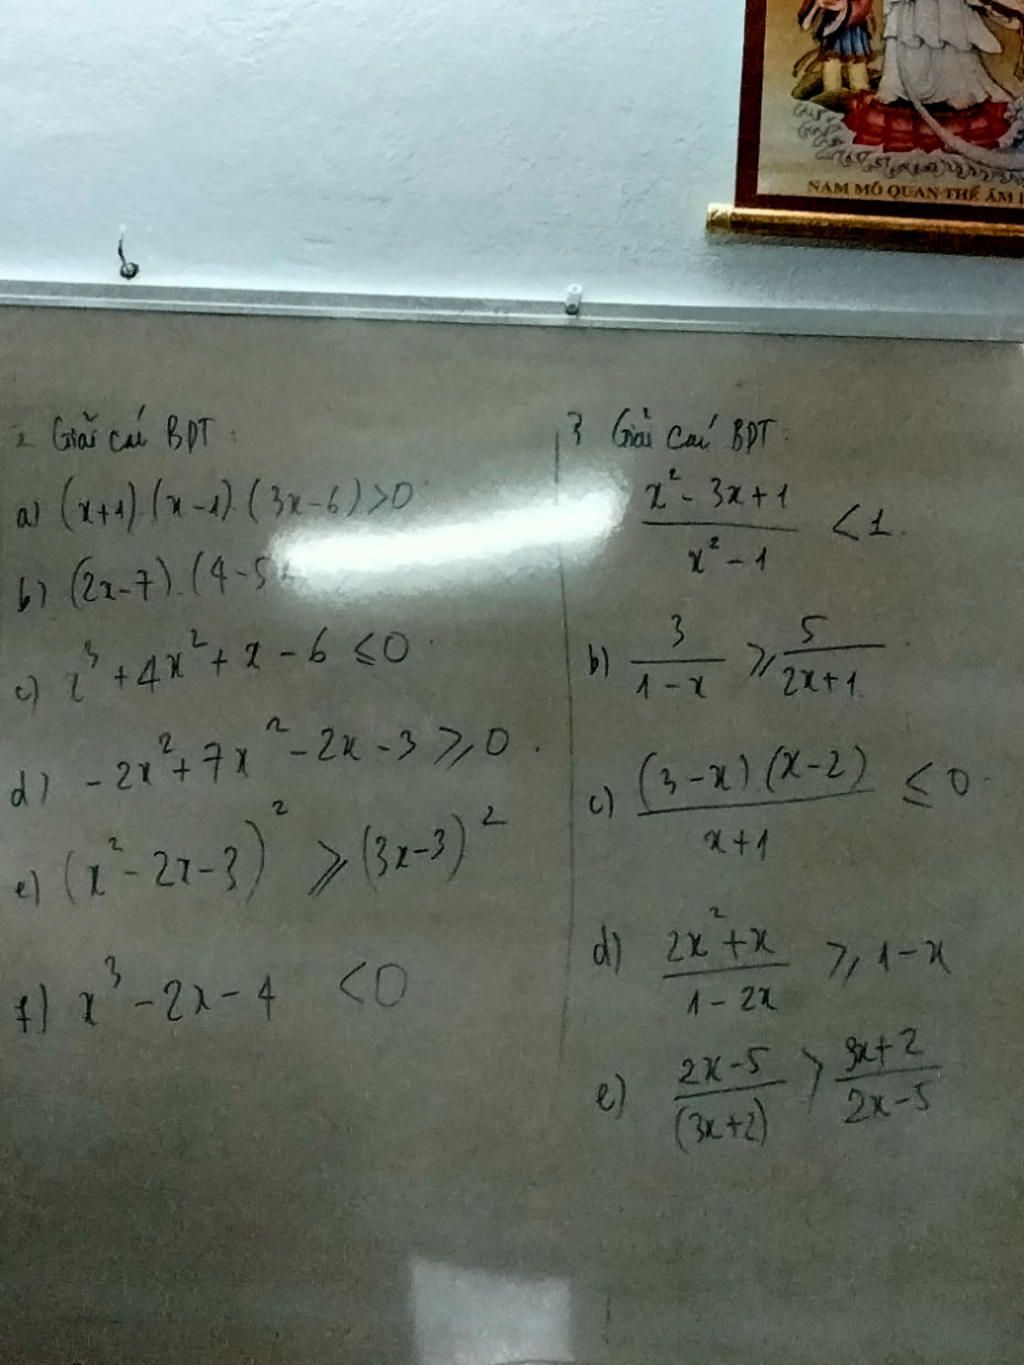 NAM MÔ QUAN THẾ ÂM
2 Giải các BPT:
a) (x+1).(x-1).(3x-6)>0
b) (2x-7).(4-5
c) x³+4x²+x-6 ≤0
d) -2x²+7x²-2x-3 ≥0
e) (x²-2x-3)² ≥ (3x-3)²
f) x³-2x-4 <0
3 Giải các BPT:
(x²-3x+1)/(x²-1) <1
b) 3/(1-x) ≥ 5/(2x+1)
c) (3-x)(x-2)/(x+1) ≤0
d) (2x²+x)/(1-2x) ≥ 1-x
e) (2x-5)/(3x+2) > (3x+2)/(2x-5)